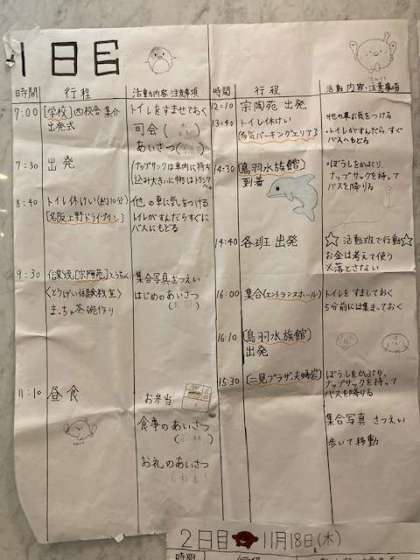 1日目
時間 行程 活動内容・注意事項
7:00 [学校]四校合 集合
出発式
トイレをすませておく
司会( )
あいさつ( )
7:30 出発
ナップサックは車内に持ち
込み大きいに物はトランク
8:40 トイレ休けい(約10分)
[名阪上野ドライブイン]
他の車に気をつける
トイレがすんだらすぐに
バスにもどる
9:30
(とうげい体験教室)
まっちゃ茶碗作り
集合写真さつえい
はじめのあいさつ
( )
11:10 昼食
お弁当
食事のあいさつ
( )
お礼のあいさつ
( )
時間 行程 活動内容・注意事項
12:10 宗陶苑 出発
13:40 トイレ休けい
パーキングエリア
・他の車に気をつける
・トイレがすんだら、すぐ
バスへもどる
14:30 [鳥羽水族館]
到着
・ぼうしをかぶり、
ナップサックを持って
バスを降りる
14:40 各班 出発
☆活動班で行動☆
お金は考えて使う
×落とさない
16:00 集合(エントランスホール)
・トイレをすましておく
・5分前には集まっておく
16:10 [鳥羽水族館]
出発
15:30 [二見プラザ,夫婦岩]
・ぼうしをかぶり、
ナップサックを持って
バスを降りる
集合写真 さつえい
歩いて移動
2日目 11月18日(水)
時間